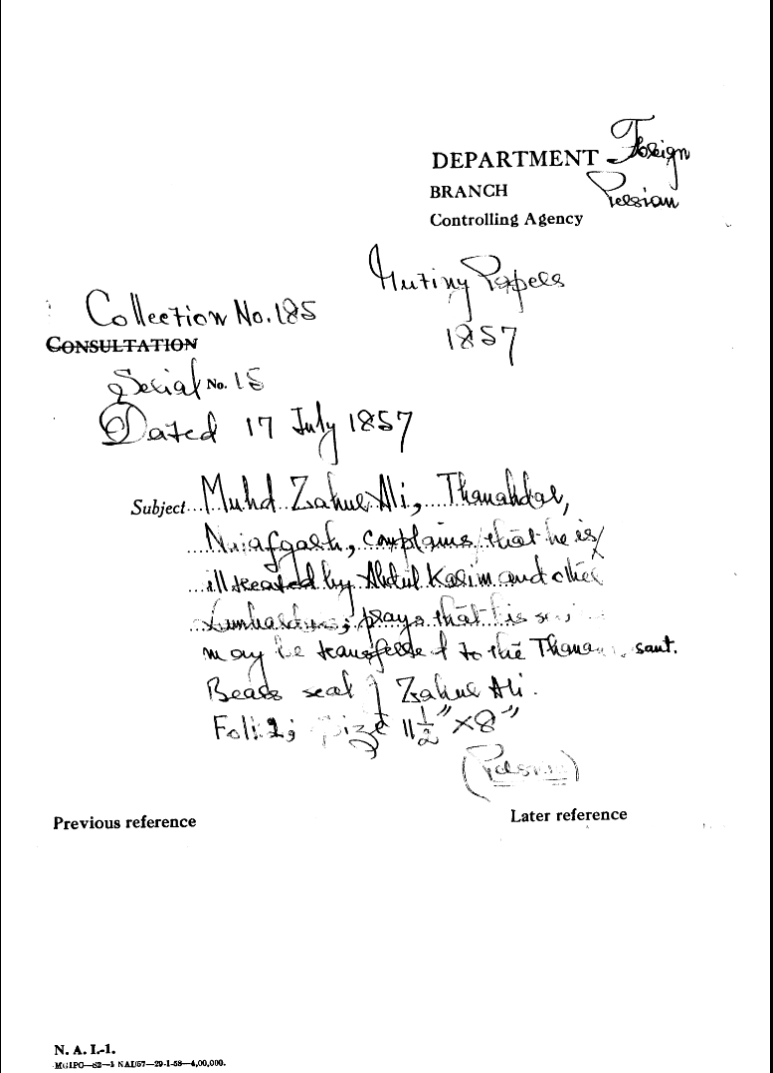 DEPARTMENT Foreign
BRANCH Persian
Controlling Agency
Mutiny Papers
1857
Collection No. 185
CONSULTATION
Serial No. 15
Dated 17 July 1857
Subject Muhd Zahur Ali, Thanahdar,
complains that he is
ill treated by Abdul Karim and other
prays that his
may be transferred to the
Bears seal of Zahur Ali.
Fol: size 11½" × 8"
(Persian)
Previous reference
Later reference
N. A. I.-1.
MGIPC—S2—1 NAI/57—29-1-58—4,00,000.